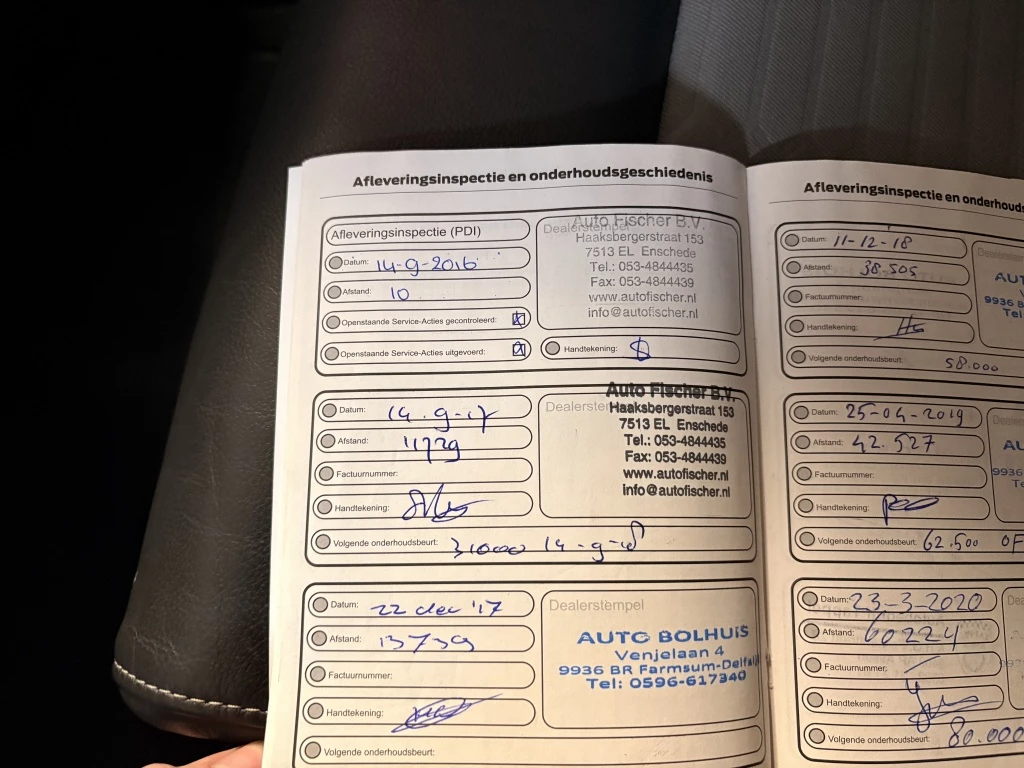 Afleveringsinspectie en onderhoudsgeschiedenis
Afleveringsinspectie (PDI)
Datum: 14-9-2016
Afstand: 10
Openstaande Service-Acties gecontroleerd:
Openstaande Service-Acties uitgevoerd:
Dealerstempel
Auto Fischer B.V.
Haaksbergerstraat 153
7513 EL Enschede
Tel.: 053-4844435
Fax: 053-4844439
www.autofischer.nl
info@autofischer.nl
Handtekening:
Datum: 14-9-17
Afstand: 11729
Factuurnummer:
Handtekening:
Auto Fischer B.V.
Haaksbergerstraat 153
7513 EL Enschede
Tel.: 053-4844435
Fax: 053-4844439
www.autofischer.nl
info@autofischer.nl
Volgende onderhoudsbeurt: 31000 14-9-18
Datum: 22 dec '17
Afstand: 13739
Factuurnummer:
Handtekening:
Dealerstempel
AUTO BOLHUIS
Venjelaan 4
9936 BR Farmsum-Delfzijl
Tel: 0596-617340
Volgende onderhoudsbeurt:
Afleveringsinspectie en onderhouds
Datum: 11-12-18
Afstand: 38.505
Factuurnummer:
Handtekening:
AUT
9936 B
Tel
Volgende onderhoudsbeurt: 58.000
Datum: 25-04-2019
Afstand: 42.527
Factuurnummer:
Handtekening:
AU
9936
Te
Volgende onderhoudsbeurt: 62.500 OF
Datum: 23-3-2020
Afstand: 60224
Factuurnummer: -
Handtekening:
Volgende onderhoudsbeurt: 80.000